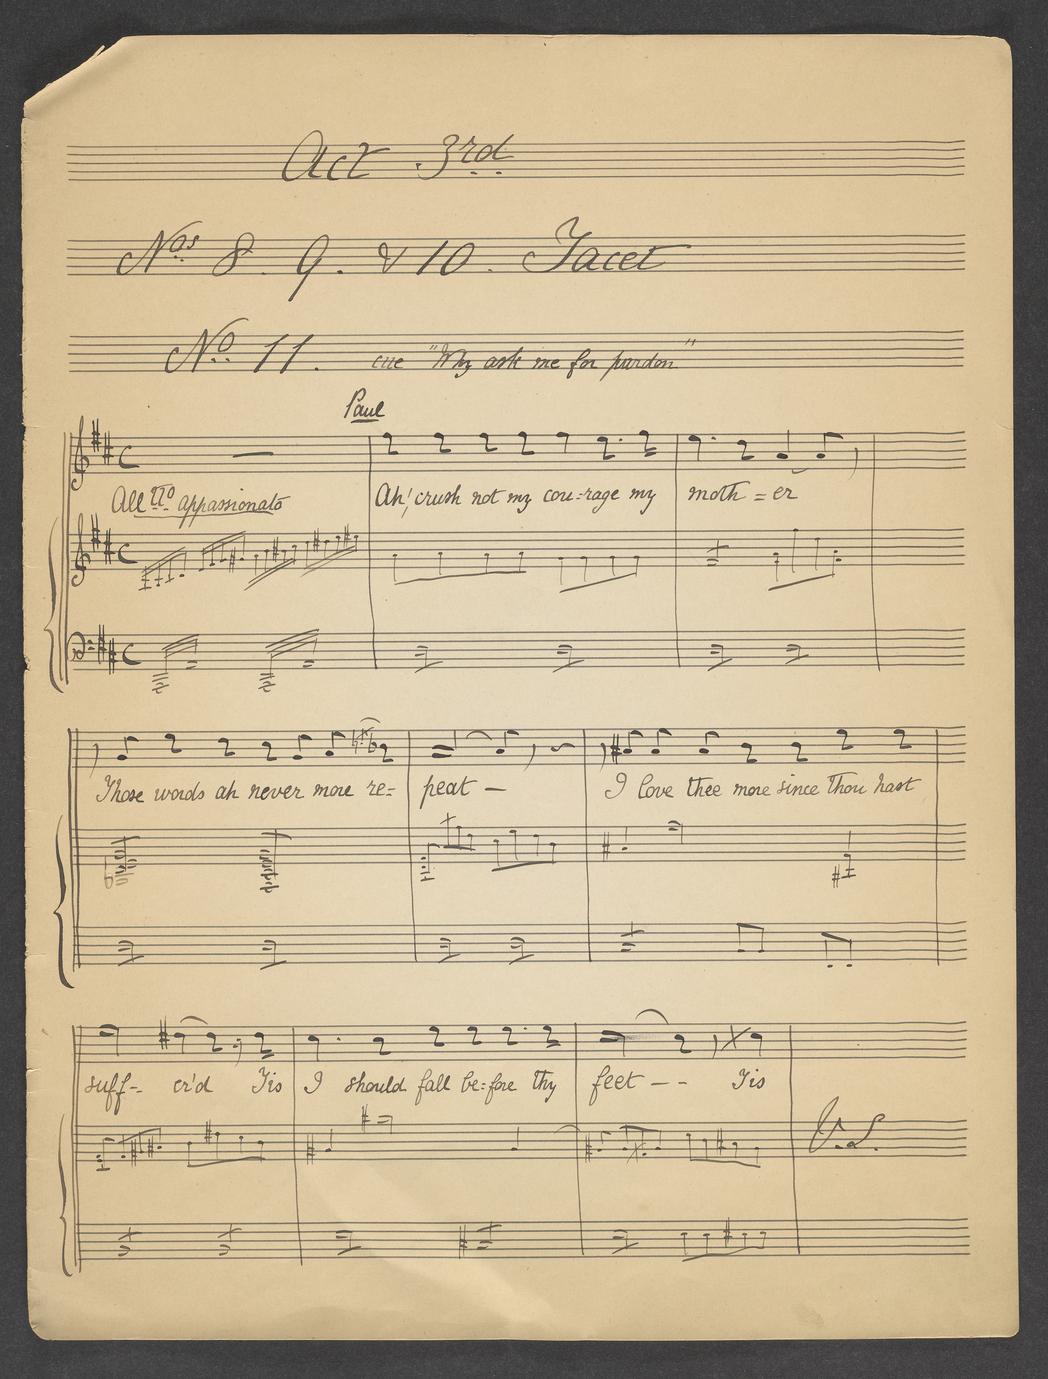 Act 3rd
Nos 8. 9. & 10. Tacet
No. 11. cue "Why ask me for pardon"
Paul
All tto appassionato
Ah! crush not my cou=rage my moth=er
Those words ah never more re=peat —
I love thee more since thou hast
suff- er'd Tis I should fall be=fore thy feet - - Tis
V.S.